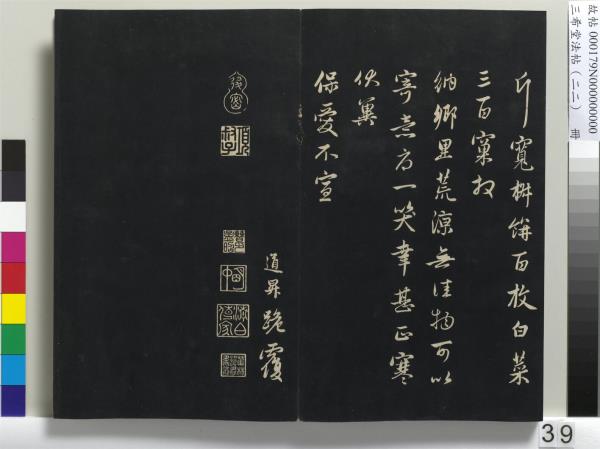 斤寬栟餅百枚白菜
三百窠扨
納鄉里荒涼無佳物可以
寄意方一笑幸甚正寒
伏冀
保愛不宣
道昇跪覆
故帖 000179N000000000
三希堂法帖（二二） 冊
39